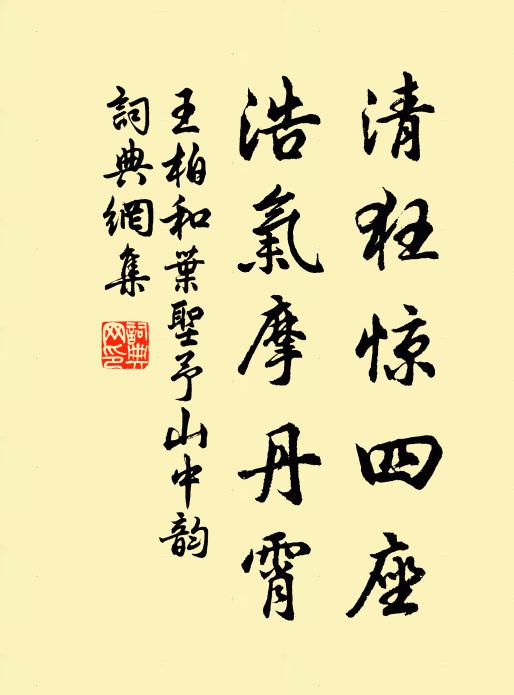 清狂惊四座
浩氣摩丹霄
王柏和葉聖予山中韵
詞典網集
詞典
网印